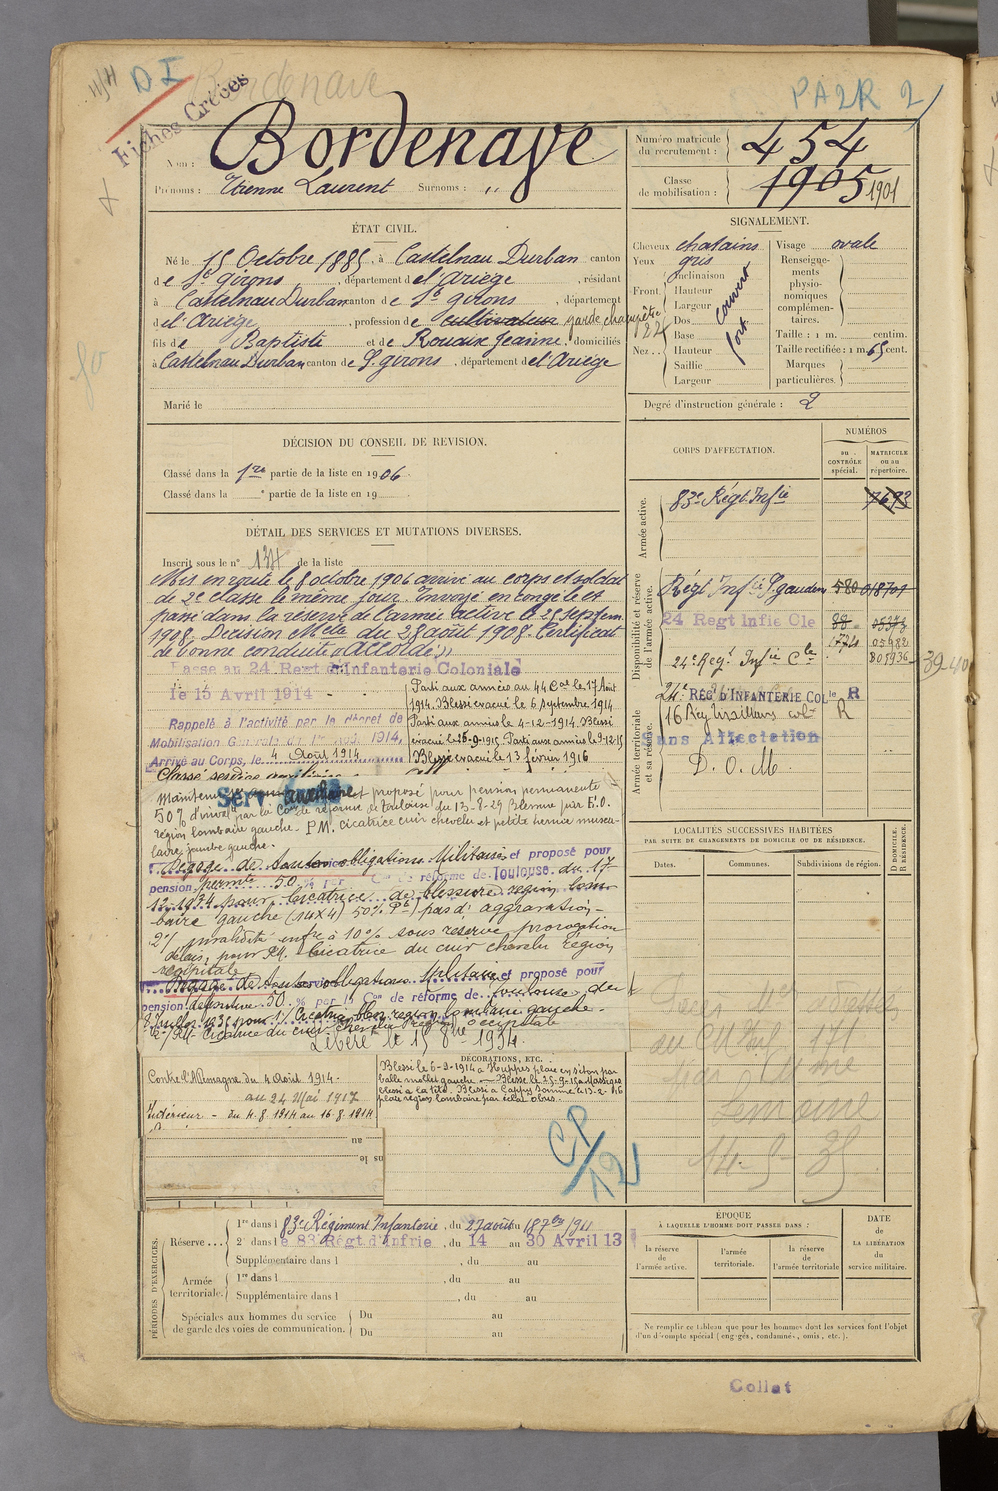 D I
Bordenave
PA2R 2
Fiches Créées
Nom : Bordenave
Prénoms : Etienne Laurent Surnoms : "
Numéro matricule du recrutement : 454
Classe de mobilisation : 1905 1901
ÉTAT CIVIL.
Né le 15 Octobre 1885, à Castelnau Durban canton
de St girons, département de l'Ariège, résidant
à Castelnau Durban canton de St girons, département
de l'Ariège, profession de cultivateur garde champêtre
fils de Baptiste et de Rouaix Jeanne, domiciliés
à Castelnau Durban canton de St girons, département de l'Ariège
Marié le
SIGNALEMENT.
Cheveux chatains
Yeux gris
Front Inclinaison
Hauteur
Largeur
Nez Dos
Base
Hauteur
Saillie
Largeur
couvert
fort
Visage ovale
Renseignements physionomiques complémentaires.
Taille : 1 m. centim.
Taille rectifiée : 1 m. 65 cent.
Marques particulières.
Degré d'instruction générale : 2
DÉCISION DU CONSEIL DE REVISION.
Classé dans la 1re partie de la liste en 1906.
Classé dans la e partie de la liste en 19
DÉTAIL DES SERVICES ET MUTATIONS DIVERSES.
Inscrit sous le n° 134 de la liste
Mis en route le 8 octobre 1906 arrivé au corps et soldat
de 2e classe le même jour. Envoyé en congé le et
passé dans la réserve de l'armée active le 25 septem
1908. Décision Mlle du 28 août 1908. Certificat
de bonne conduite "Accordé"
Passé au 24 Regt d'Infanterie Coloniale
le 15 Avril 1914
Rappelé à l'activité par le décret de
Mobilisation Générale du 1er Août 1914,
Arrivé au Corps, le 4 Août 1914
Parti aux armées au 44 Cal le 17 Aout
1914. Blessé evacué le 6 septembre 1914
Parti aux armées le 4-12-1914. Blessé
évacué le 26-9-1915. Parti aux armées le 9-12-15
Blessé évacué le 13 février 1916
Classé service auxiliaire
Maintenu Serv auxiliaire et proposé pour pension permanente
50% d'inval par la Con de réforme de Toulouse du 13-8-29 Blessure par E.O.
région lombaire gauche - P.M. cicatrice cuir chevelu et petite hernie muscu-
laire jambe gauche.
Dégagé de toutes obligations Militaires et proposé pour
pension permte 50 % par la Con de réforme de Toulouse du 17
12-1934 pour cicatrice de blessure région lom
baire gauche (14x4) 50% Pt) pas d'aggravation -
2°/ invalidité infre à 10% sous reserve prorogation
délais, pour P.M. Cicatrice du cuir chevelu région
occipitale
Dégagé de toutes obligations Militaires et proposé pour
pension définitive 50 % par la Con de réforme de Toulouse du
8 Juillet 1935 pour 1°/ Cicatrice bles. region lombaire gauche -
2°/ P.M. - Cicatrice du cuir chevelu région occipitale
Libéré le 15 8bre 1934.
Contre l'Allemagne du 4 Août 1914 -
au 24 Mai 1917
Intérieur - du 4.8.1914 au 16.8.1914
DÉCORATIONS, ETC.
Blessé le 6-9-1914 à Huppes plaie en séton par
balle mollet gauche - Blessé le 25-9-15 à Massiges
blessé à la tête. Blessé à Cappy Somme le 13-2-1916
plaie région lombaire par éclat obus.
au
CP/12
CORPS D'AFFECTATION.
NUMÉROS
au CONTRÔLE spécial.
MATRICULE ou au répertoire.
Armée active.
83e Régt Infie 7693
Disponibilité et réserve de l'armée active.
Régt Infie St gaudens 580 018701
24 Regt Infie Cle 88
24e Regt Infie Cle 1774 05982
B05936
39-40
Armée territoriale et sa réserve.
24e REG. D'INFANTERIE COLle R
16 Reg Tirailleurs colx R
Sans Affectation
D. O. M.
LOCALITÉS SUCCESSIVES HABITÉES
PAR SUITE DE CHANGEMENTS DE DOMICILE OU DE RÉSIDENCE.
Dates. Communes. Subdivisions de région. D. DOMICILE. R. RÉSIDENCE.
14-5-35
PÉRIODES D'EXERCICES.
Réserve... 1re dans le 83e Régiment Infanterie, du 27 août au 18 7bre 1911
2e dans le 83 Régt d'Infrie, du 14 au 30 Avril 13
Supplémentaire dans l , du au
Armée territoriale. 1re dans l , du au
Supplémentaire dans l , du au
Spéciales aux hommes du service de garde des voies de communication. Du au
Du au
ÉPOQUE
À LAQUELLE L'HOMME DOIT PASSER DANS :
la réserve de l'armée active.
l'armée territoriale.
la réserve de l'armée territoriale
DATE DE LA LIBÉRATION du service militaire.
Ne remplir ce tableau que pour les hommes dont les services font l'objet
d'un décompte spécial (engagés, condamnés, omis, etc.).
Collat